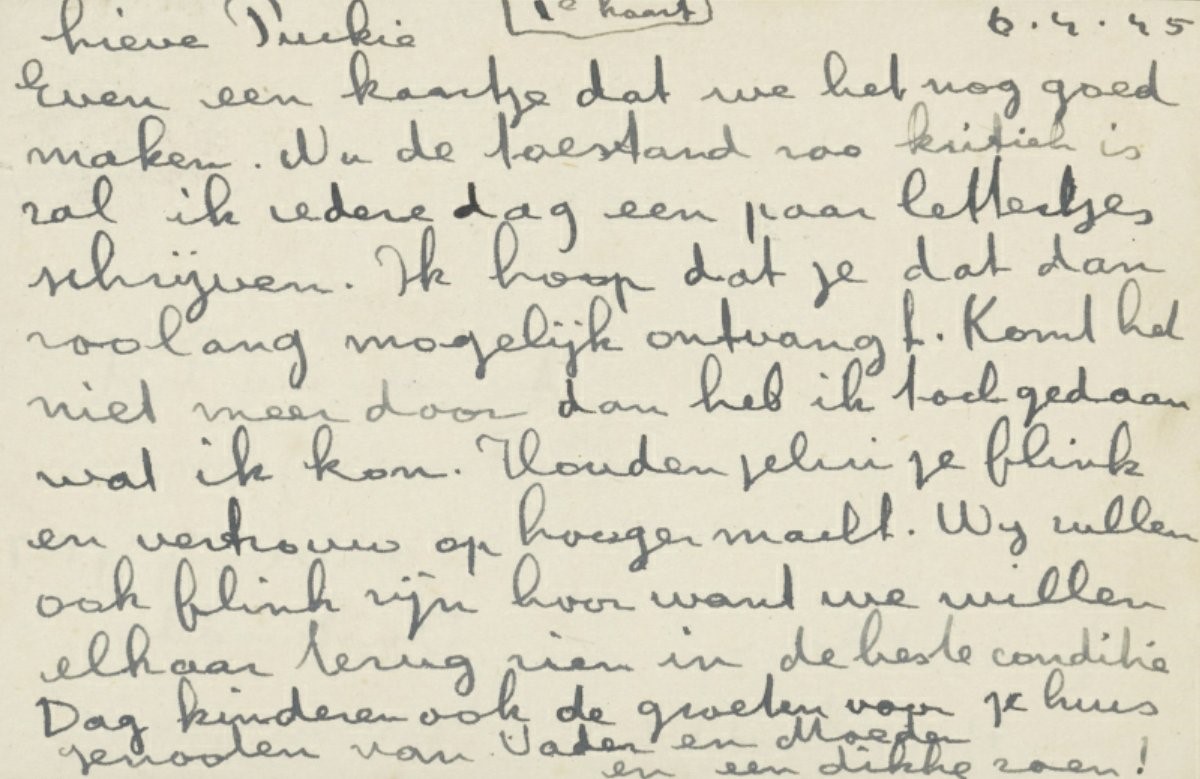 lieve Puckie [1e kaart] 6.4.45
Even een kaartje dat we het nog goed
maken. Nu de toestand zoo kritiek is
zal ik iedere dag een paar lettertjes
schrijven. Ik hoop dat je dat dan
zoolang mogelijk ontvangt. Komt het
niet meer door dan heb ik toch gedaan
wat ik kon. Houden jelui je flink
en vertrouw op hooger macht. Wij zullen
ook flink zijn hoor want we willen
elkaar terug zien in de beste conditie
Dag kinderen ook de groeten voor je huis
genooten van Vader en Moeder
en een dikke zoen!